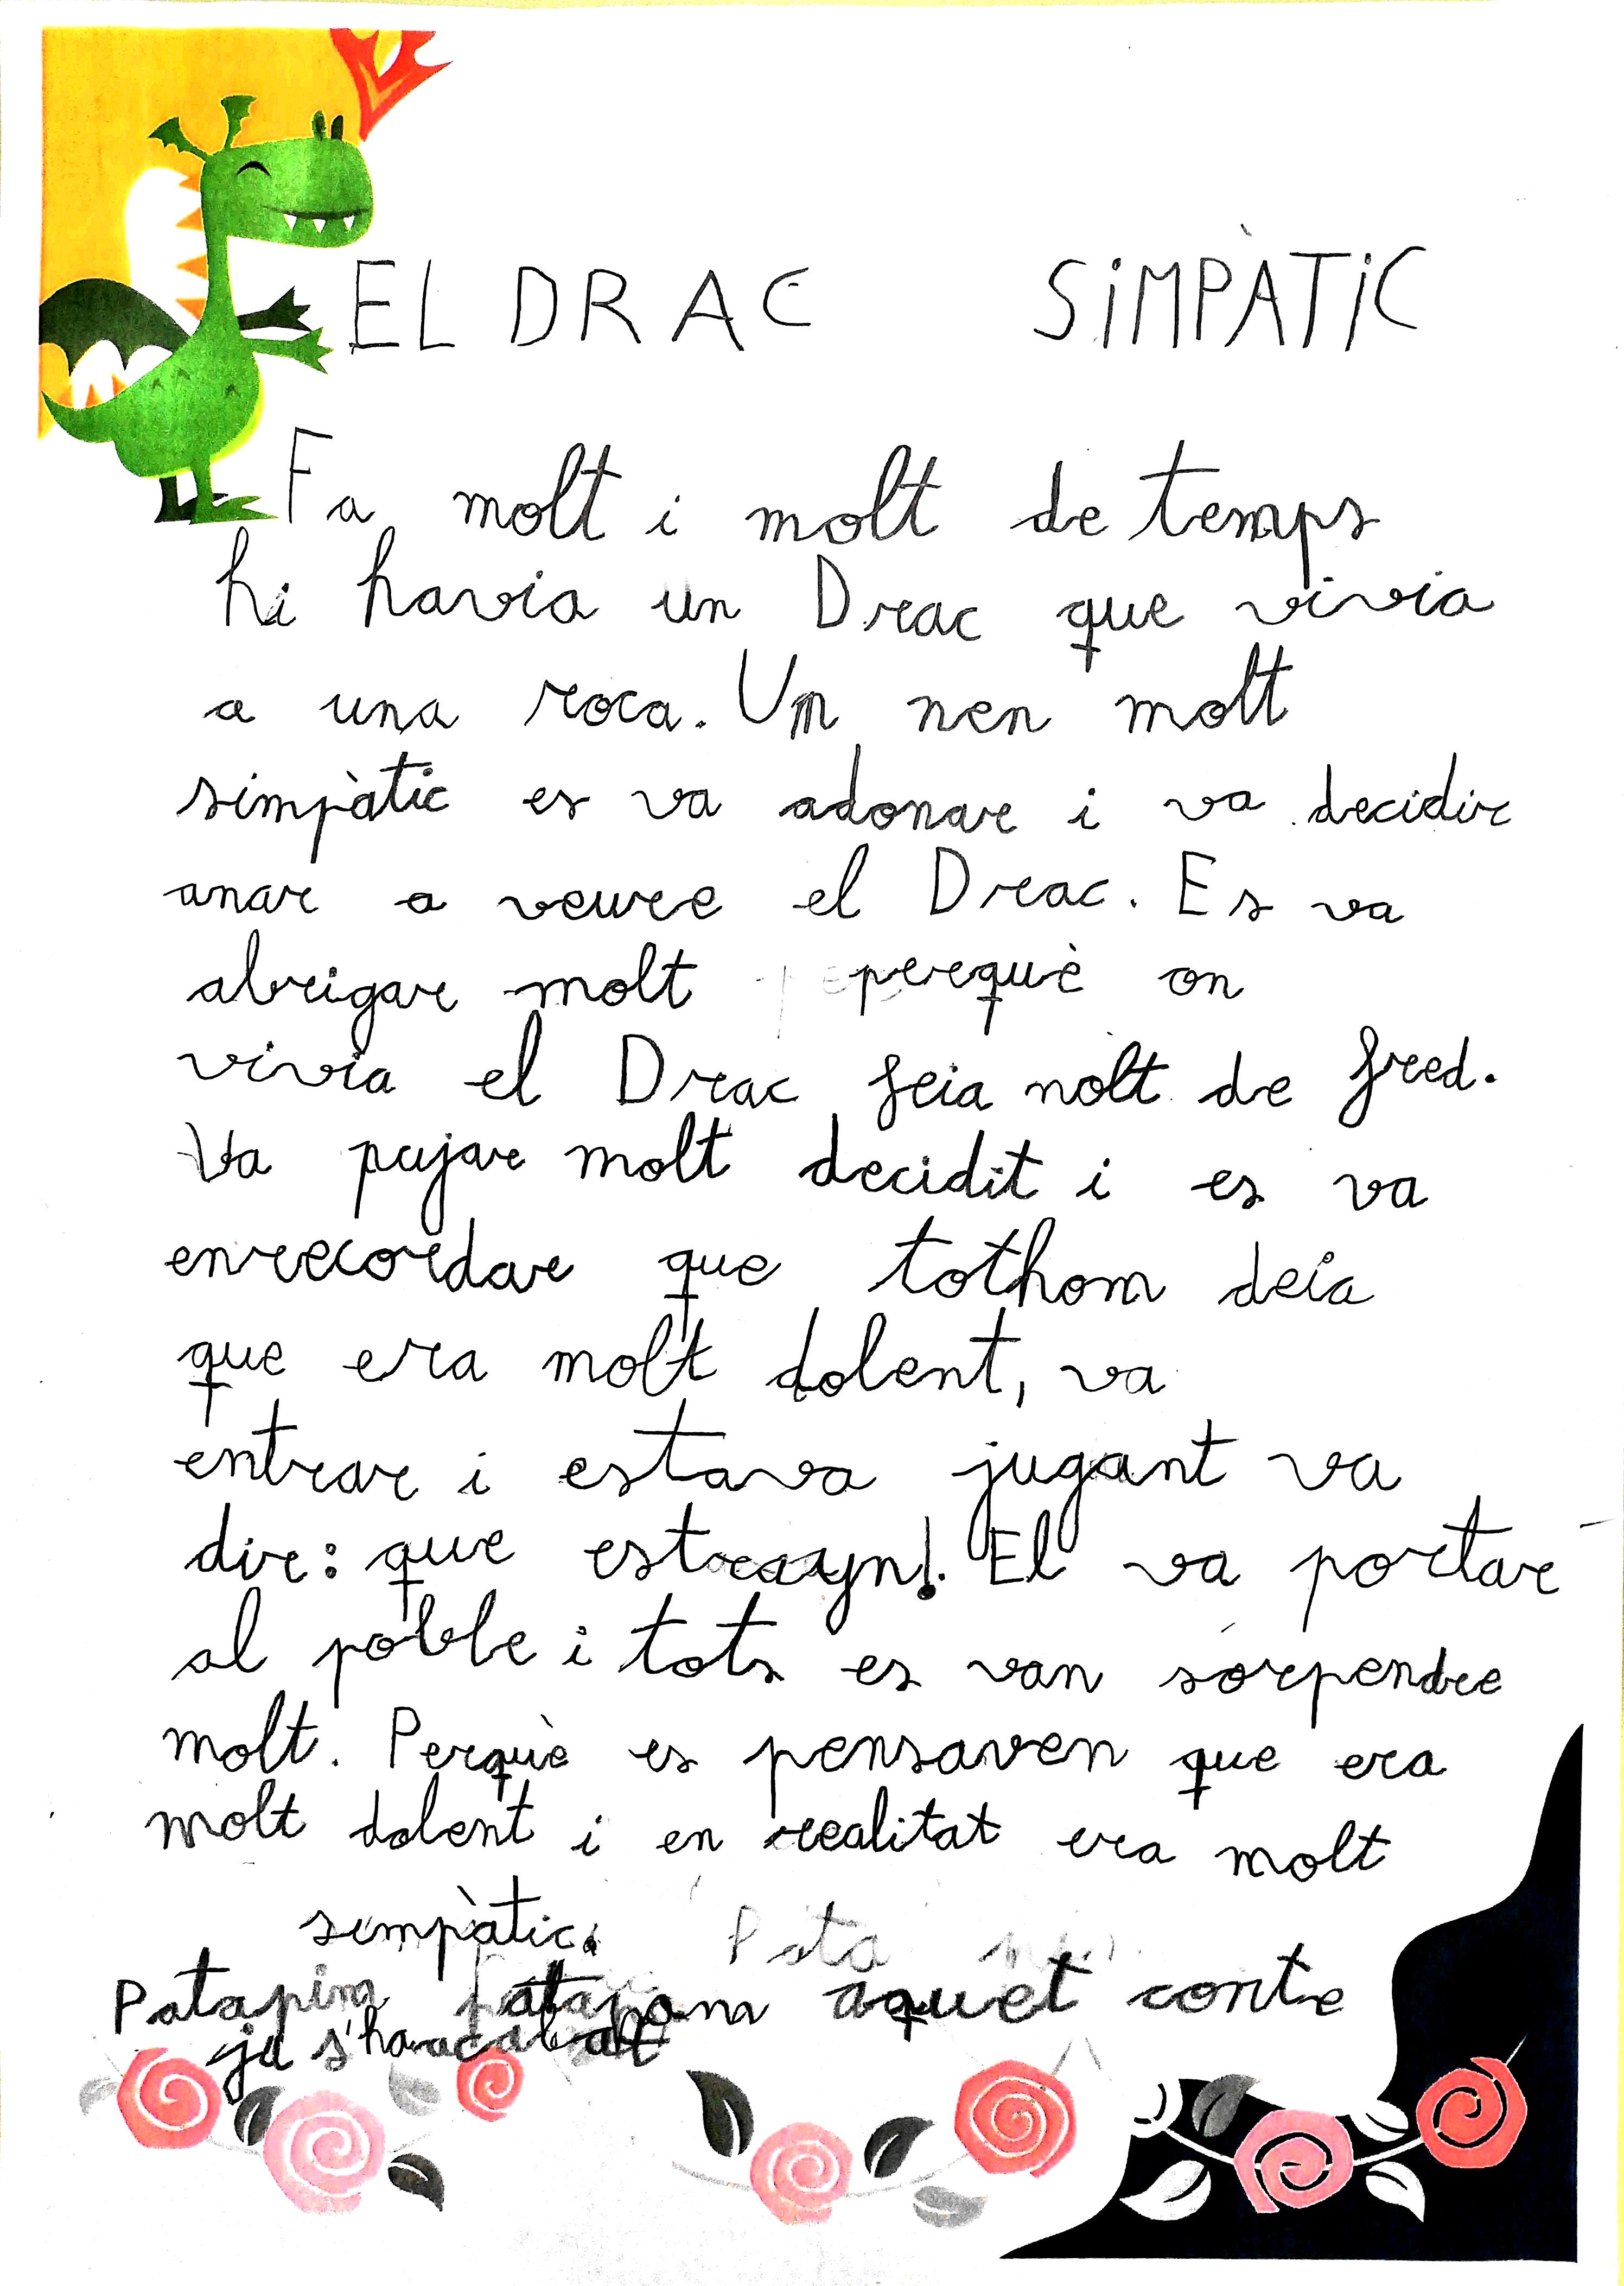 EL DRAC SiMPÀTiC
Fa molt i molt de temps
hi havia un Drac que vivia
a una roca. Un nen molt
simpàtic es va adonar i va decidir
anar a veure el Drac. Es va
abrigar molt perquè on
vivia el Drac feia nolt de fred.
Va pujar molt decidit i es va
enrecordar que tothom deia
que era molt dolent, va
entrar i estava jugant va
dir: que estrayn!. El va portar
al poble i tots es van sorpendre
molt. Perquè es pensaven que era
molt dolent i en realitat era molt
simpàtic.
Patapim patapam aquet conte
ja s'ha acabat